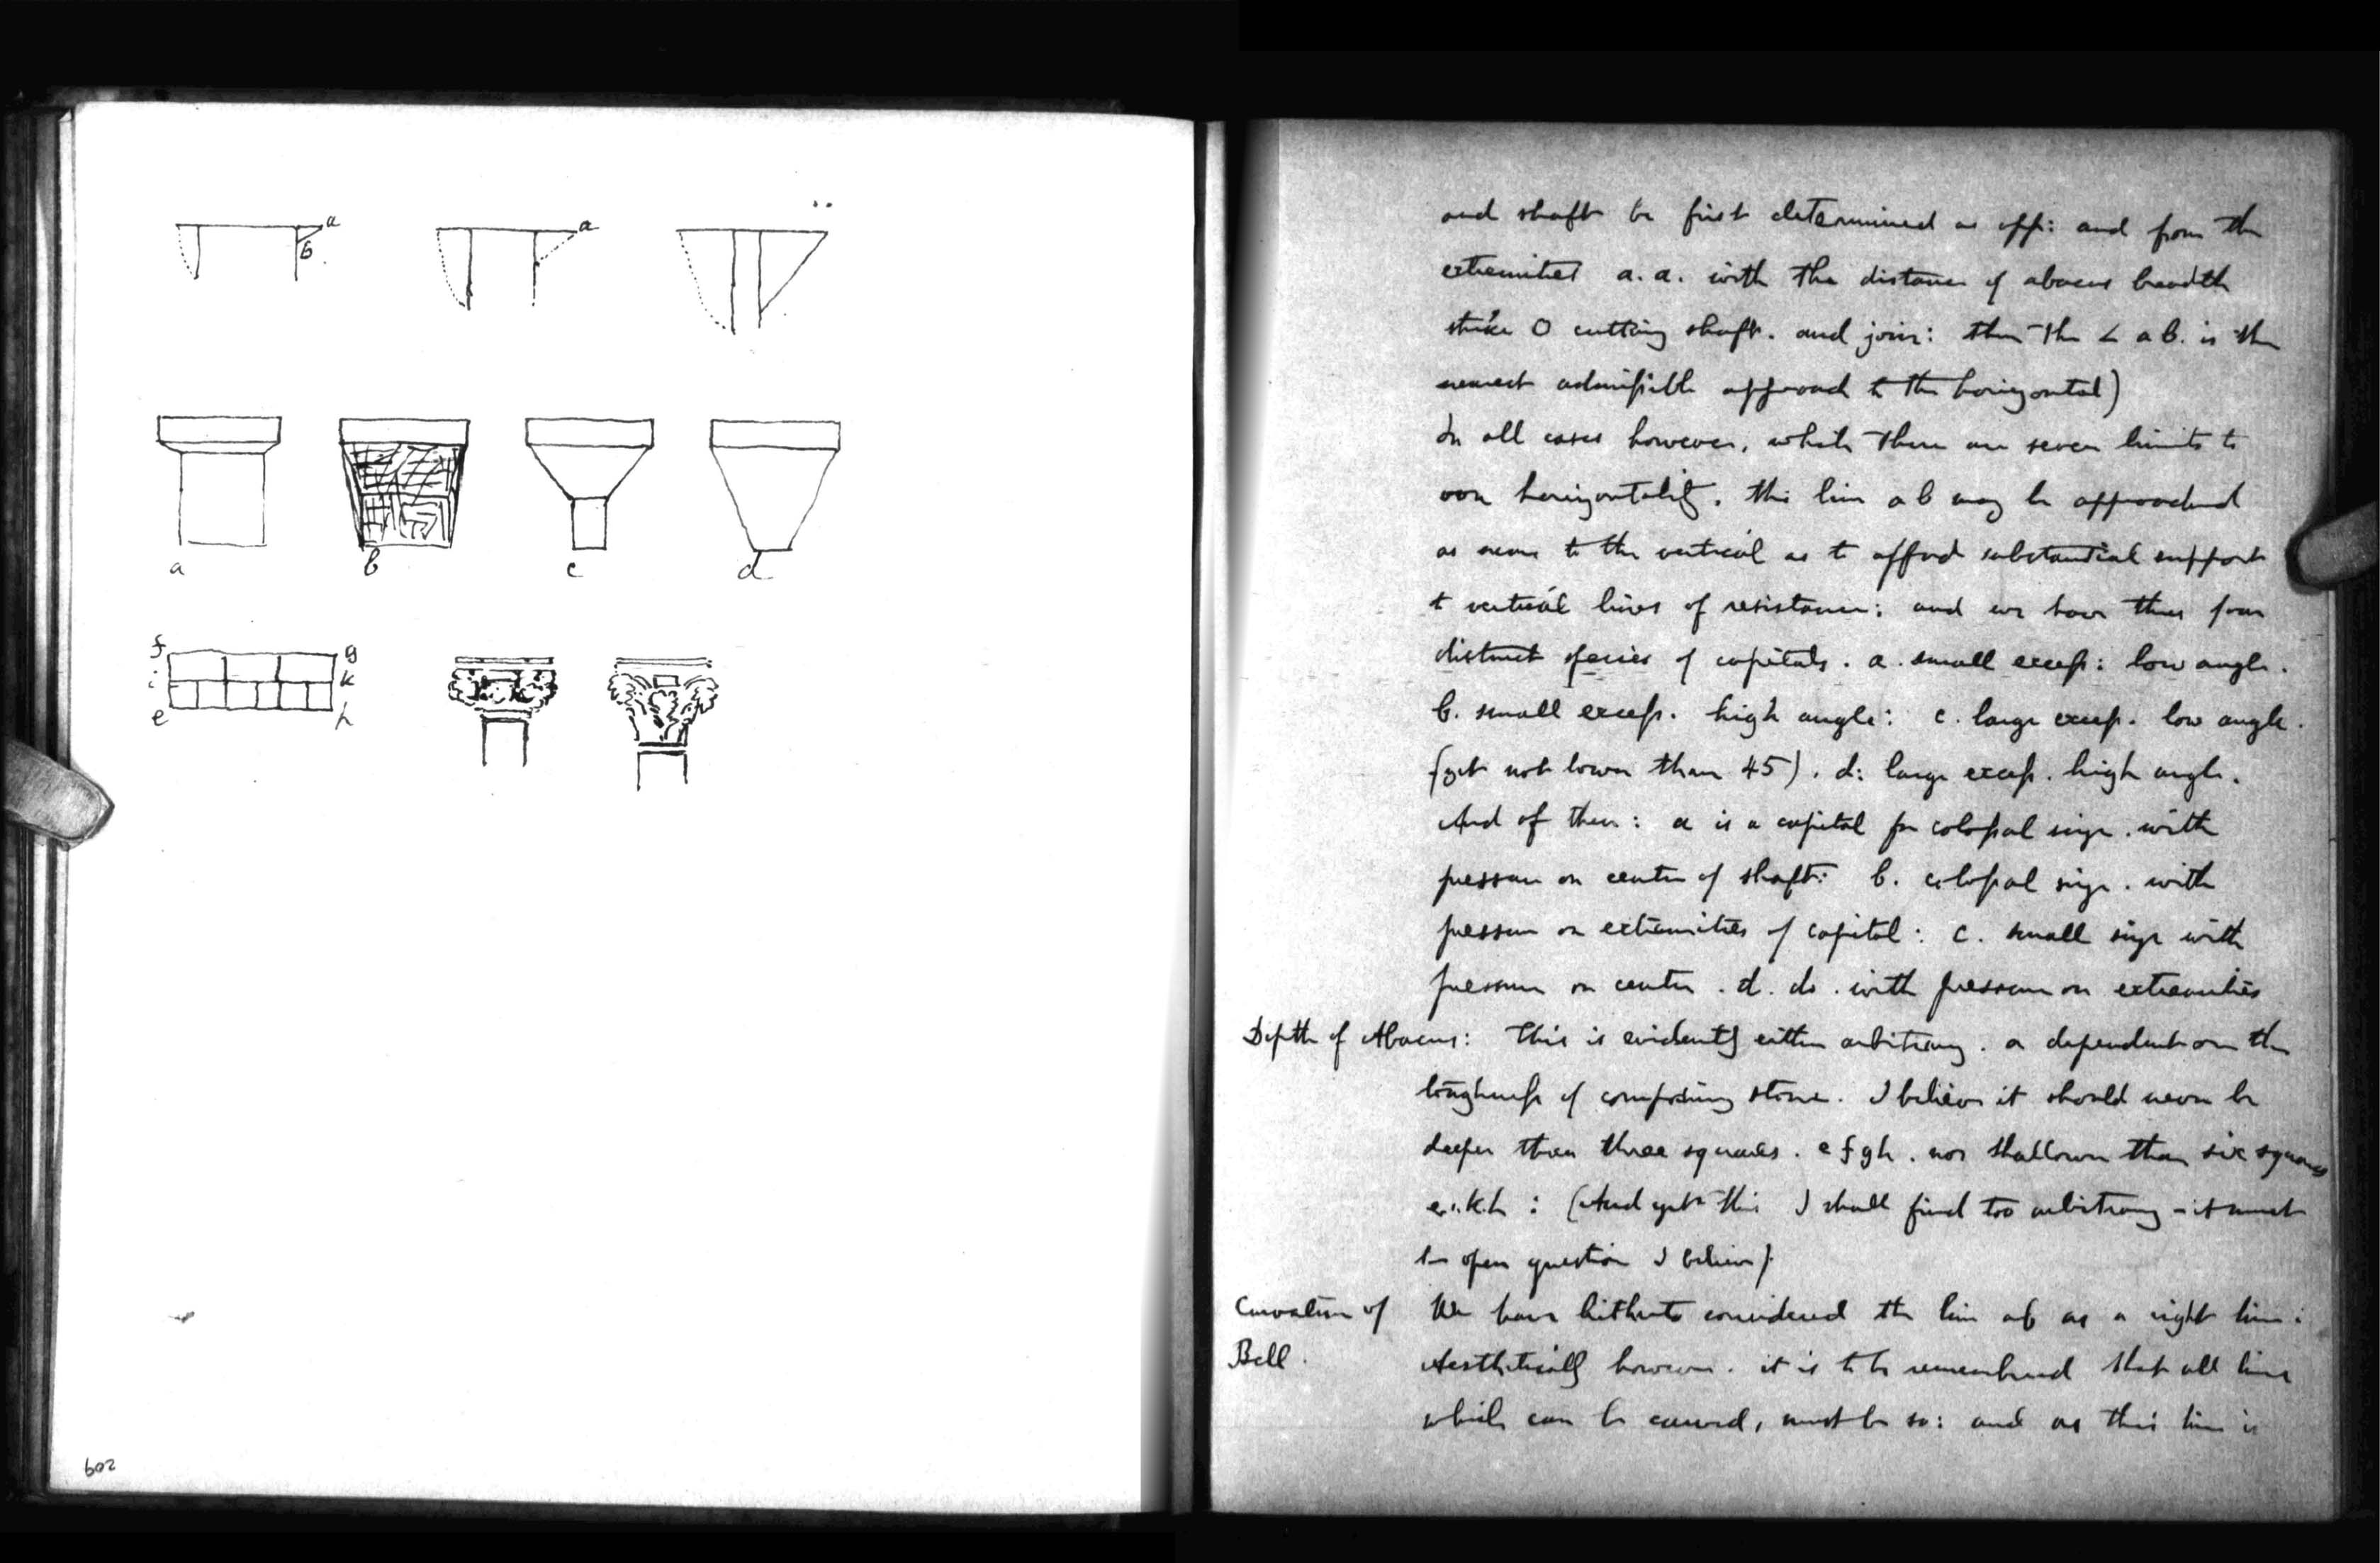 a
b
a
a
b
c
d
f
g
i
k
e
h
602
and shaft be first determined as opp: and from the
extremities a. a. with the distance of abacus breadth
strike O cutting shaft. and join: then the ∠ a b. is the
nearest admissible approach to the horizontal)
In all cases however, while there are seven limits to
horizontality. this line a b may be approached
as near to the vertical as to afford substantial support
to vertical lines of resistance: and we have thus four
distinct species of capitals. a. small excess: low angle.
b. small excess. high angle: c. large excess. low angle.
(yet not lower than 45). d: large excess. high angle.
And of these: a is a capital for colossal size. with
pressure on centre of shaft: b. colossal size. with
pressure on extremities of capital: c. small size with
pressure on centre. d. do. with pressure on extremities
Depth of Abacus: This is evidently either arbitrary. or dependent on the
toughness of composing stone. I believe it should never be
deeper than three squares. e f g h. nor shallower than six squares
e.i.k.h: (And yet this I shall find too arbitrary - it must
be open question I believe).
Curvature of
Bell.
We have hitherto considered the line ab as a right line:
Aesthetically however. it is to be remembered that all lines
which can be curved, must be so: and as this line is